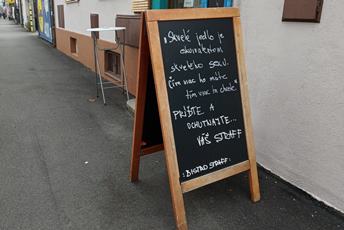 „Skvelé jedlo je
ekvivalentom
skvelého sexu.
Čím viac ho máte,
tím viac ho chcete."
PRÍĎTE A
OCHUTNAJTE...
VÁŠ STAFF
:BISTRO STAFF: